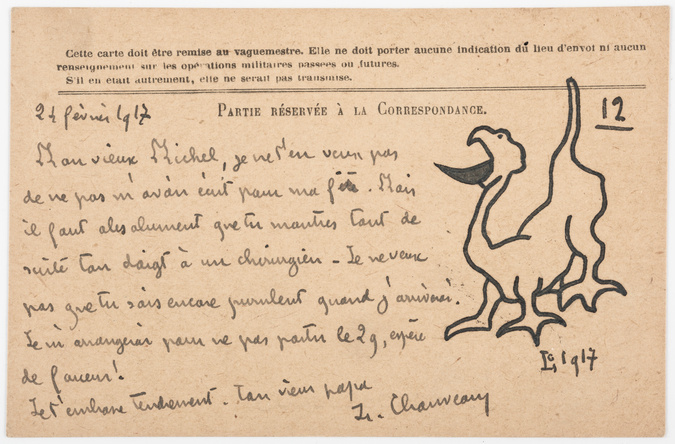 Cette carte doit être remise au vaguemestre. Elle ne doit porter aucune indication du lieu d'envoi ni aucun
renseignement sur les opérations militaires passées ou futures.
S'il en était autrement, elle ne serait pas transmise.
24 février 1917
PARTIE RÉSERVÉE À LA CORRESPONDANCE.
12
Mon vieux Michel, je ne t'en veux pas
de ne pas m'avoir écrit pour ma fête. Mais
il faut absolument que tu montres tout de
suite ton doigt à un chirurgien - Je ne veux
pas que tu sois encore purulent quand j'arriverai.
Je m'arrangerai pour ne pas partir le 29, espère
de
Je t'embrasse tendrement. Ton vieux papa
L. Chauveau
Lc 1917